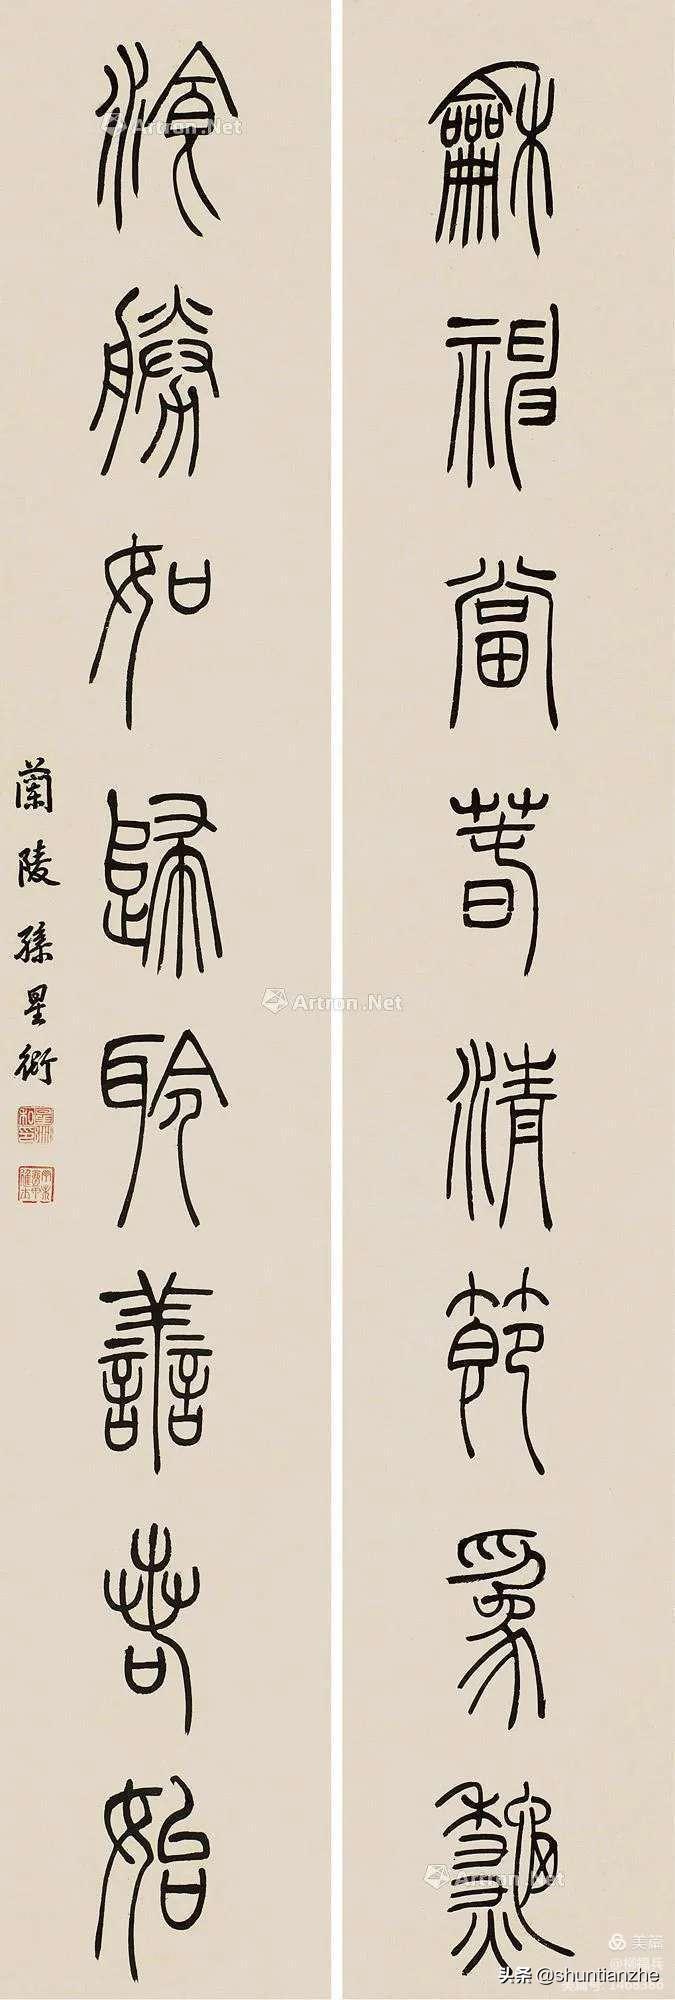 龢神當春清節為秋
湌勝如歸聆善若始
蘭陵孫星衍
Artron.Net
Artron.Net
Artron.Net
美篇
头条 @shuntianzhe